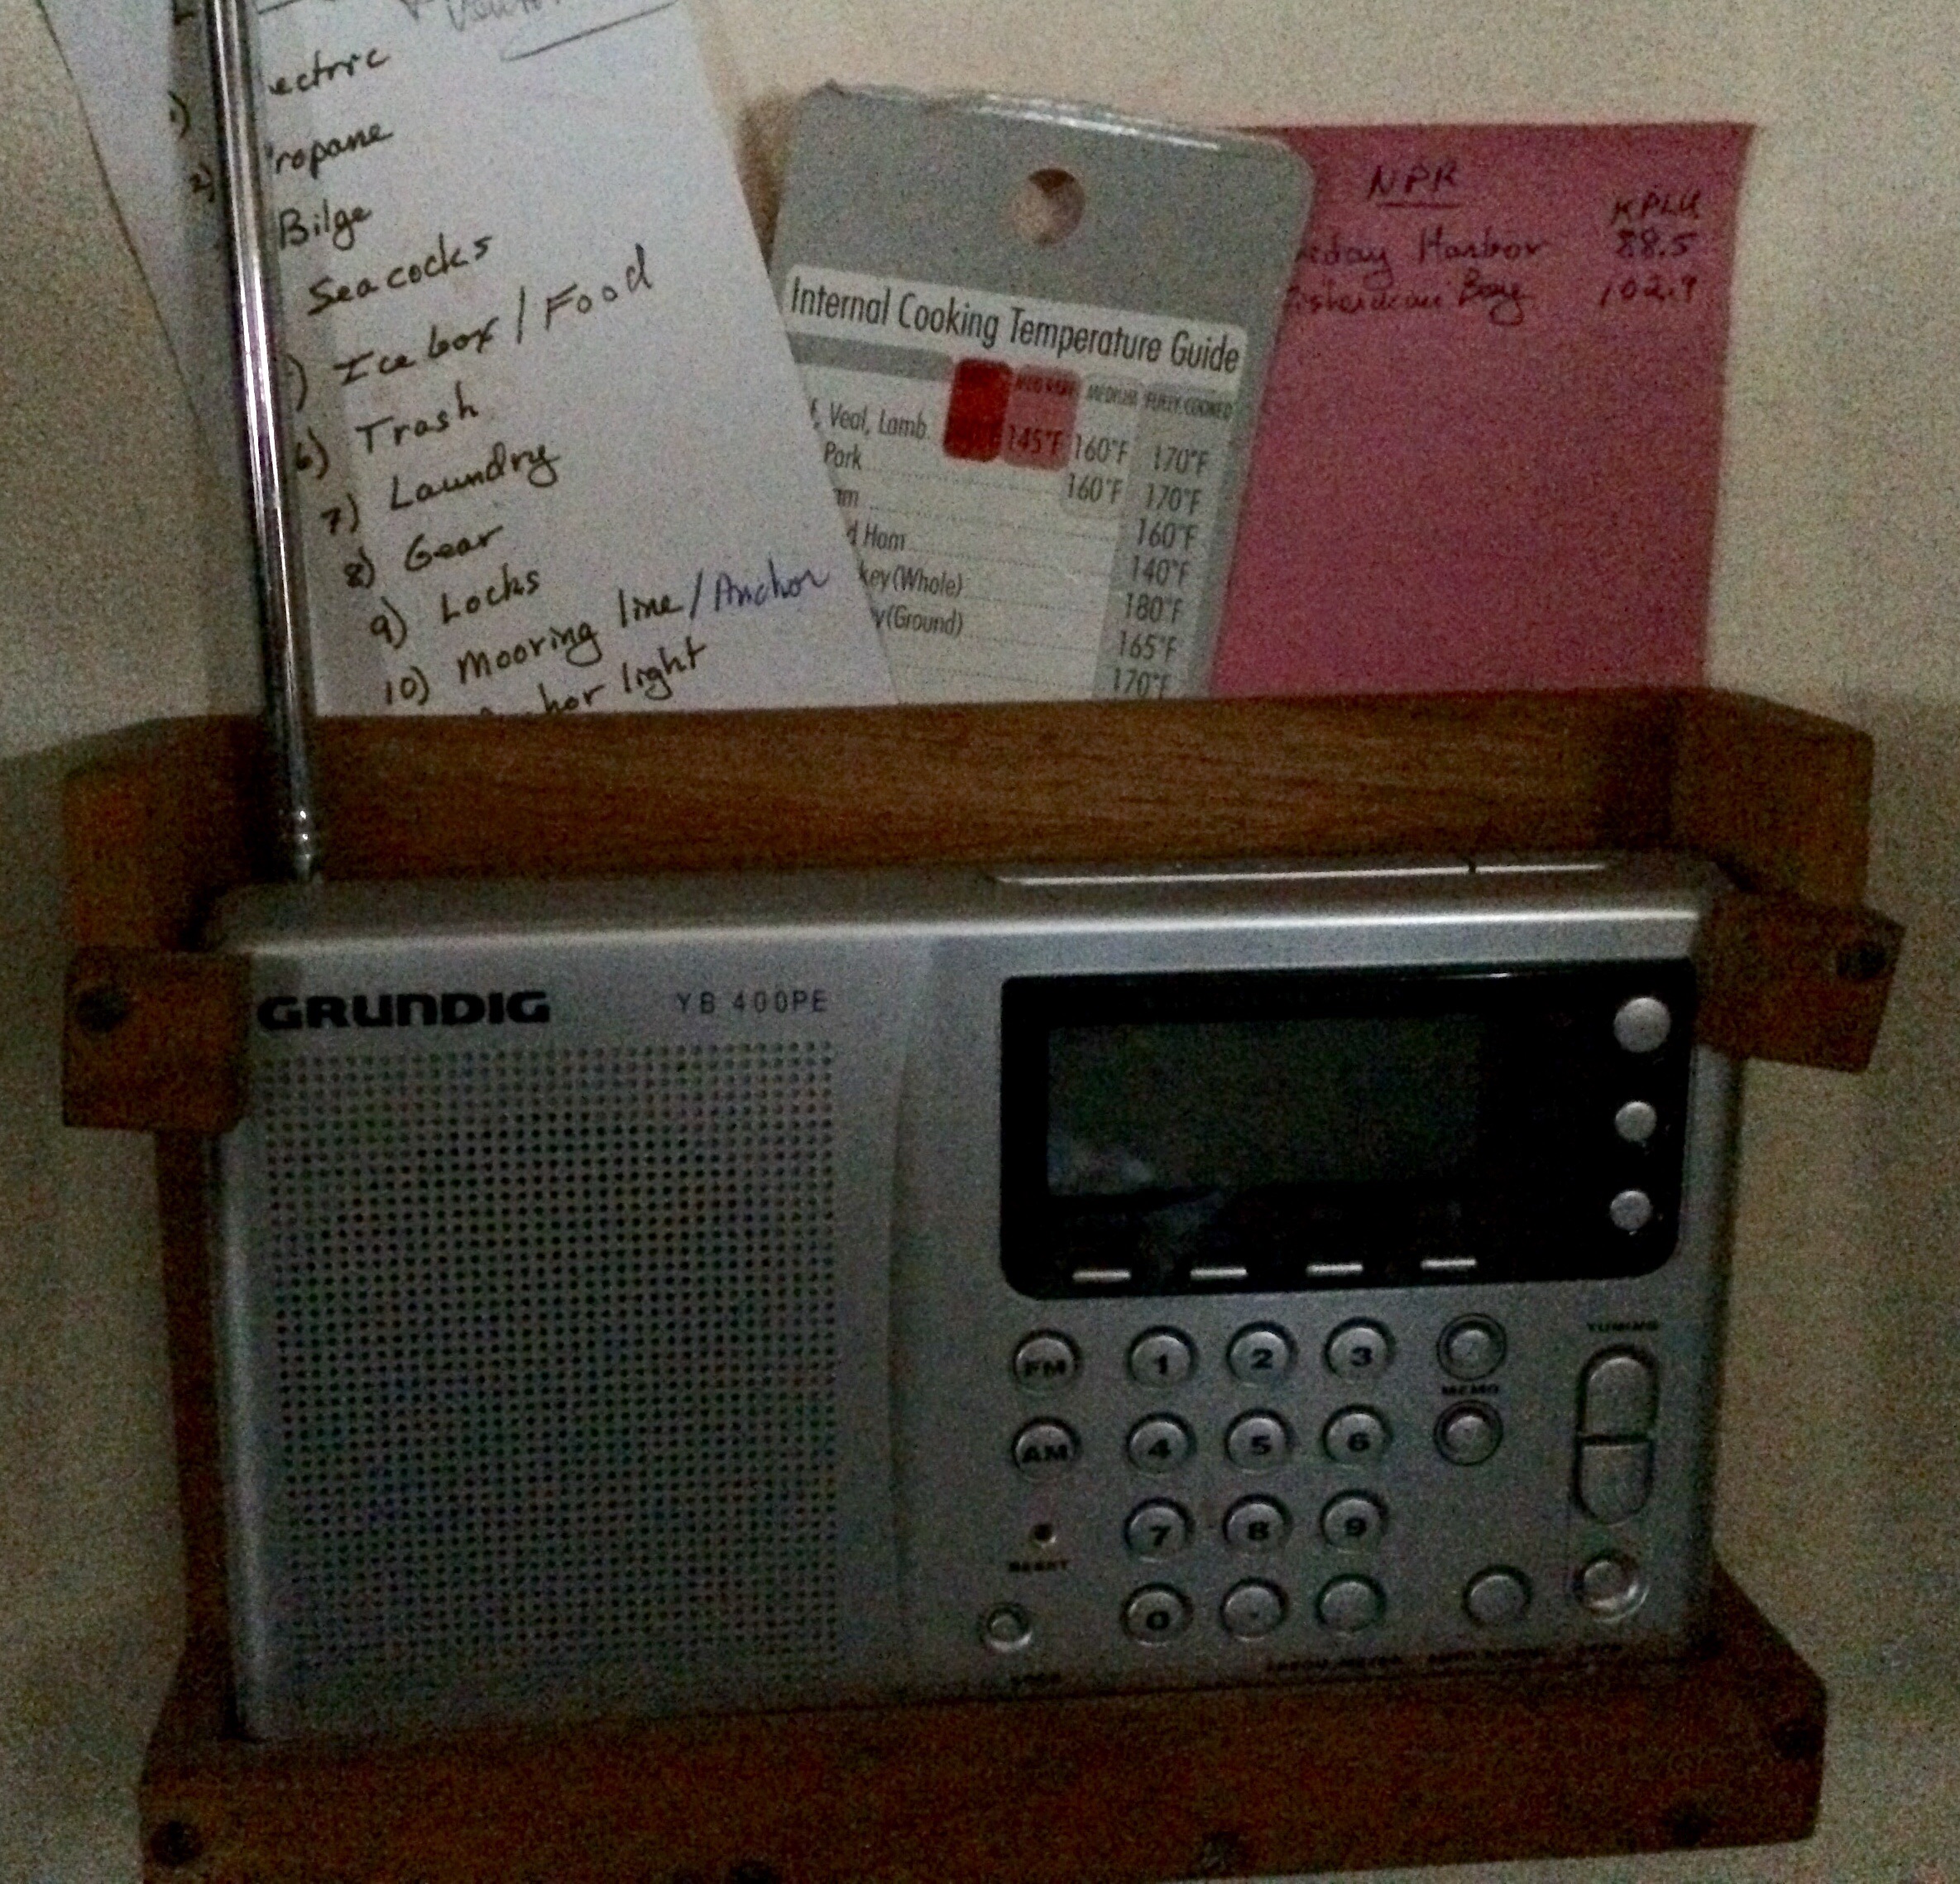 ectric
1)
ropane
2)
Bilge
Seacocks
) Ice box / Food
6) Trash
7) Laundry
8) Gear
9) Locks
10) Mooring line / Anchor
chor light
Internal Cooking Temperature Guide
MEDIUM FULLY COOKED
f, Veal, Lamb 145°F 160°F 170°F
Pork 160°F 170°F
am 160°F
d Ham 140°F
key (Whole) 180°F
y (Ground) 165°F
170°F
NPR
KPLU
day Harbor 88.5
Bay 102.9
GRUNDIG YB 400PE
FM 1 2 3
TUNING
MEMO
AM 4 5 6
7 8 9
RESET
0 .